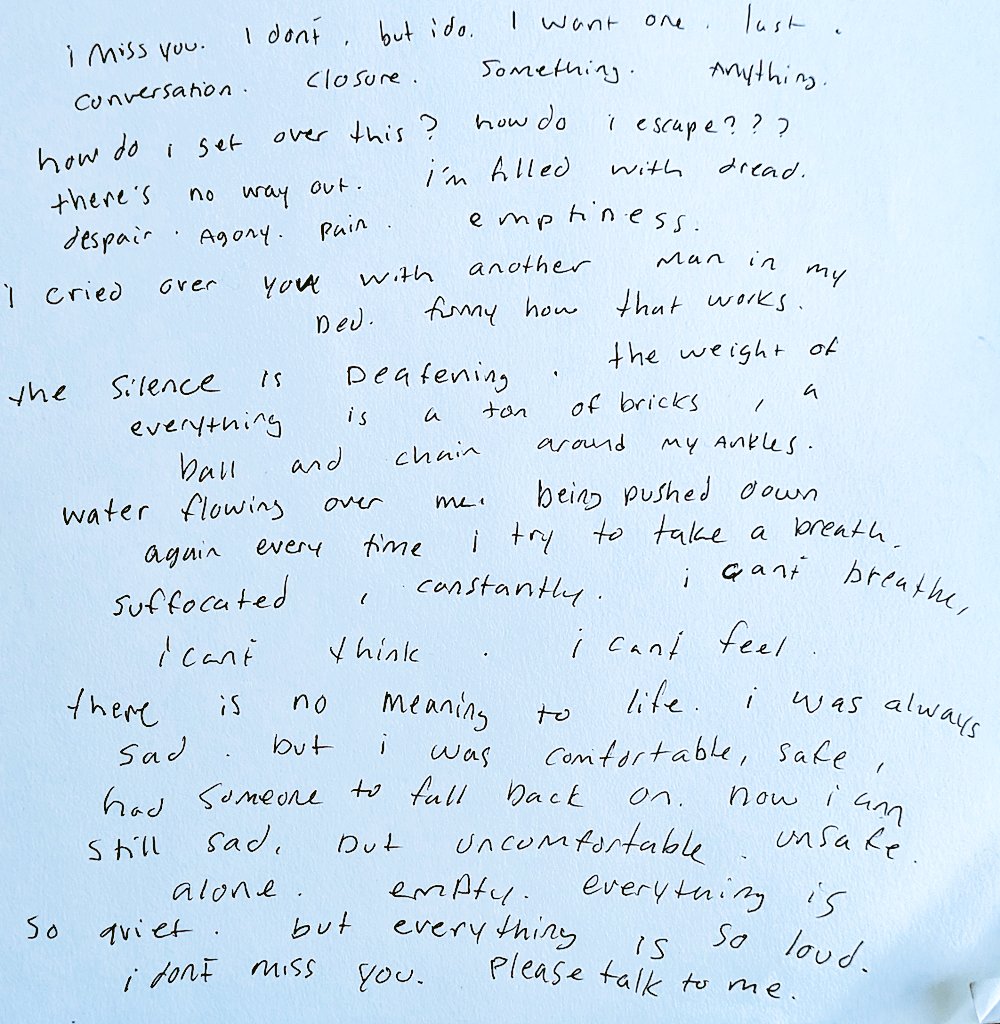 i miss you. I dont, but i do. I want one. last.
conversation. closure. something. Anything.
how do i get over this? how do i escape???
there's no way out. i'm filled with dread.
despair. Agony. pain. emptiness.
i cried over you with another man in my
bed. funny how that works.
the silence is Deafening. the weight of
everything is a ton of bricks, a
ball and chain around my ankles.
water flowing over me. being pushed down
again every time i try to take a breath.
suffocated, constantly. i cant breathe,
i cant think. i cant feel.
there is no meaning to life. i was always
sad. but i was comfortable, safe,
had someone to fall back on. now i am
still sad, but uncomfortable. unsafe.
alone. empty. everything is
so quiet. but everything is so loud.
i dont miss you. please talk to me.